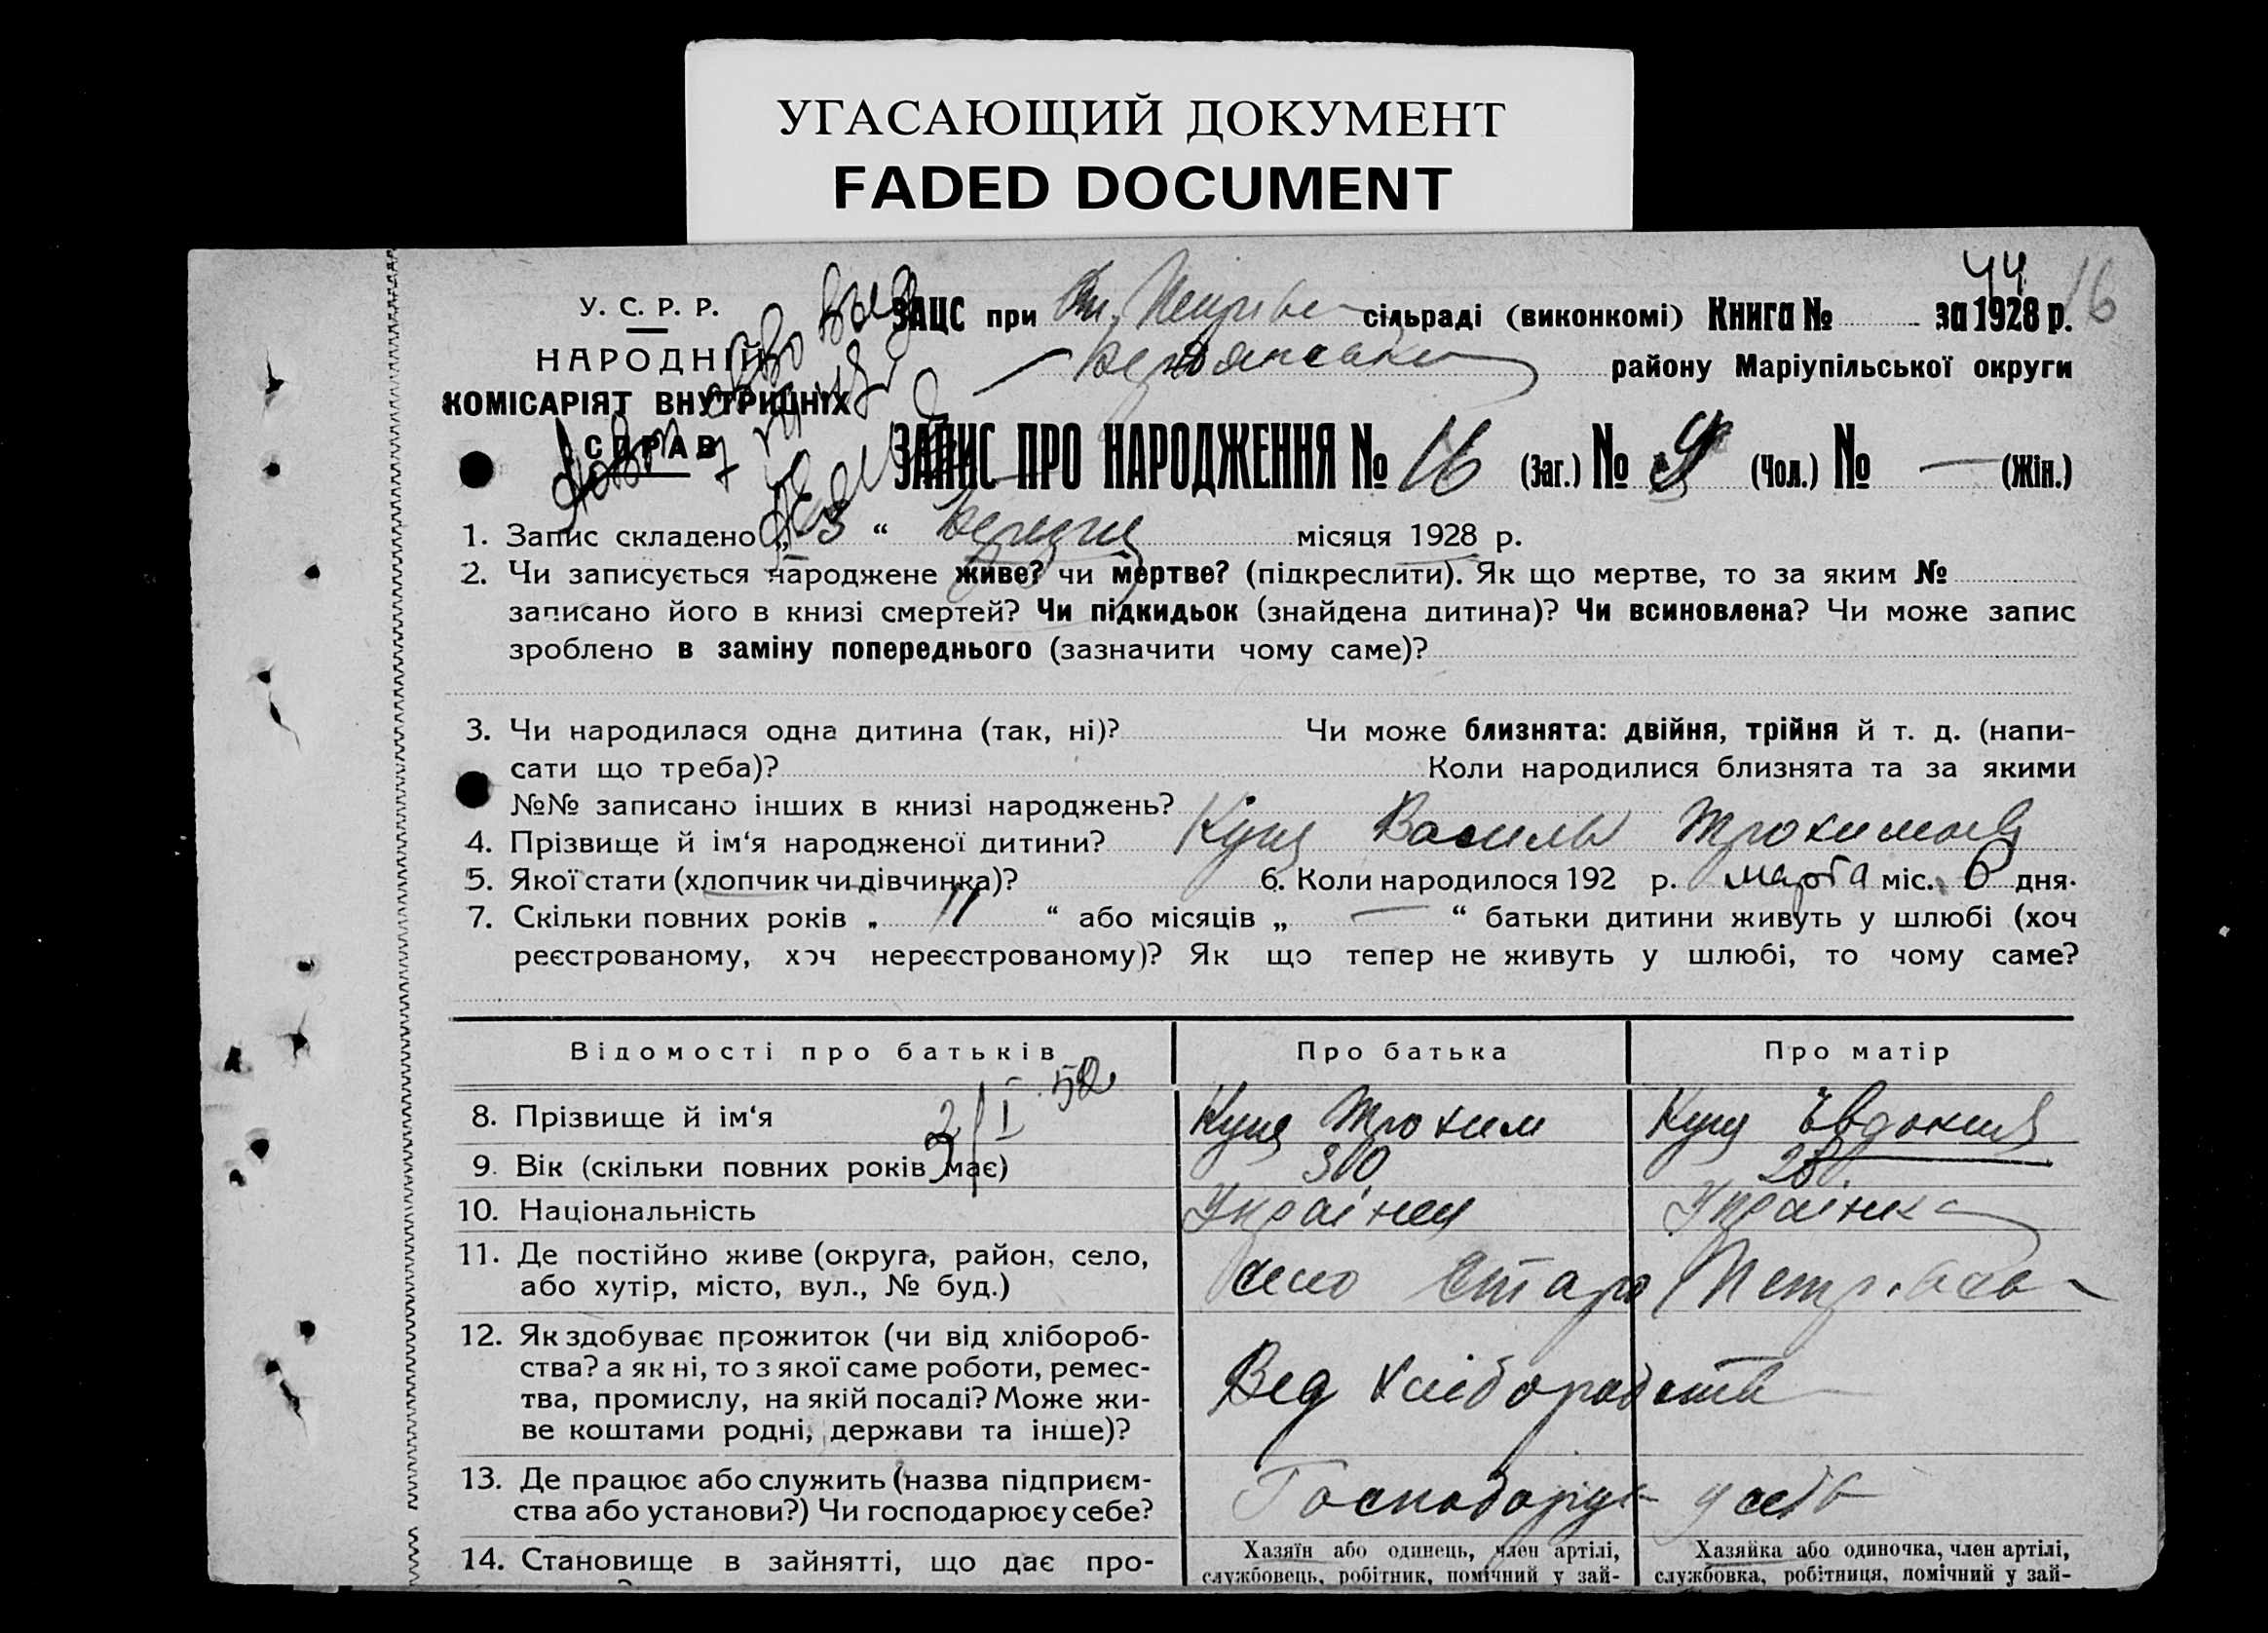 УГАСАЮЩИЙ ДОКУМЕНТ
FADED DOCUMENT
44 16
У. С. Р. Р.
НАРОДНІЙ
КОМІСАРІЯТ ВНУТРИШНІХ
СПРАВ
ЗАЦС при Ст. Петрівс сільраді (виконкомі) Книга № за 1928 р.
Бердянськ району Маріупільської округи
ЗАПИС ПРО НАРОДЖЕННЯ № 16 (Заг.) № 9 (Чол.) № — (Жін.)
1. Запис складено „ “ Березня місяця 1928 р.
2. Чи записується народжене живе? чи мертве? (підкреслити). Як що мертве, то за яким №
записано його в книзі смертей? Чи підкидьок (знайдена дитина)? Чи всиновлена? Чи може запис
зроблено в заміну попереднього (зазначити чому саме)?
3. Чи народилася одна дитина (так, ні)? Чи може близнята: двійня, трійня й т. д. (напи-
сати що треба)? Коли народилися близнята та за якими
№№ записано інших в книзі народжень?
4. Прізвище й ім‘я народженої дитини? Куця Василь Трохимов
5. Якої стати (хлопчик чи дівчинка)? 6. Коли народилося 192 р. марта міс. 6 дня.
7. Скільки повних років „ 11 “ або місяців „ — “ батьки дитини живуть у шлюбі (хоч
реєстрованому, хоч нереєстрованому)? Як що тепер не живуть у шлюбі, то чому саме?
Відомості про батьків Про батька Про матір
2/I 52
8. Прізвище й ім‘я Куця Трохим Куця Євдокия
9. Вік (скільки повних років має) 30 28
10. Національність Українец Українка
11. Де постійно живе (округа, район, село,
або хутір, місто, вул., № буд.) село Старо Петрівка
12. Як здобуває прожиток (чи від хлібороб-
ства? а як ні, то з якої саме роботи, ремес-
тва, промислу, на якій посаді? Може жи-
ве коштами родні, держави та інше)? Вед хліборобств
13. Де працює або служить (назва підприєм-
ства або установи?) Чи господарює у себе? Господарює у себе
14. Становище в зайнятті, що дає про- Хазяїн або одинець, член артілі, Хазяйка або одиночка, член артілі,
службовець, робітник, помічний у зай- службовка, робітниця, помічний у зай-